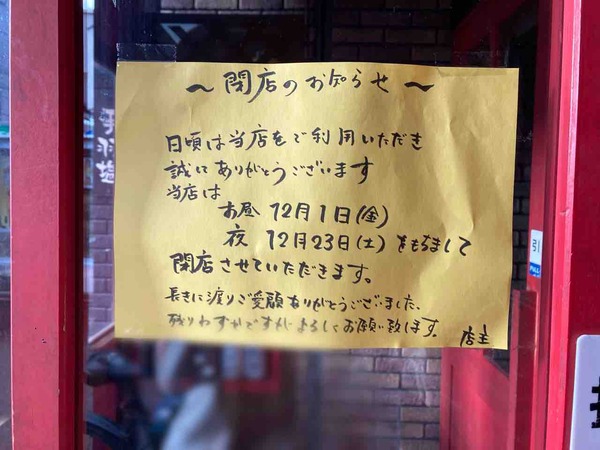 ～閉店のお知らせ～
日頃は当店をご利用いただき
誠にありがとうございます
当店は
お昼 12月1日(金)
夜 12月23日(土)をもちまして
閉店させていただきます。
長きに渡りご愛顧ありがとうございました、
残りわずかですがよろしくお願い致します。
店主
引
PULL